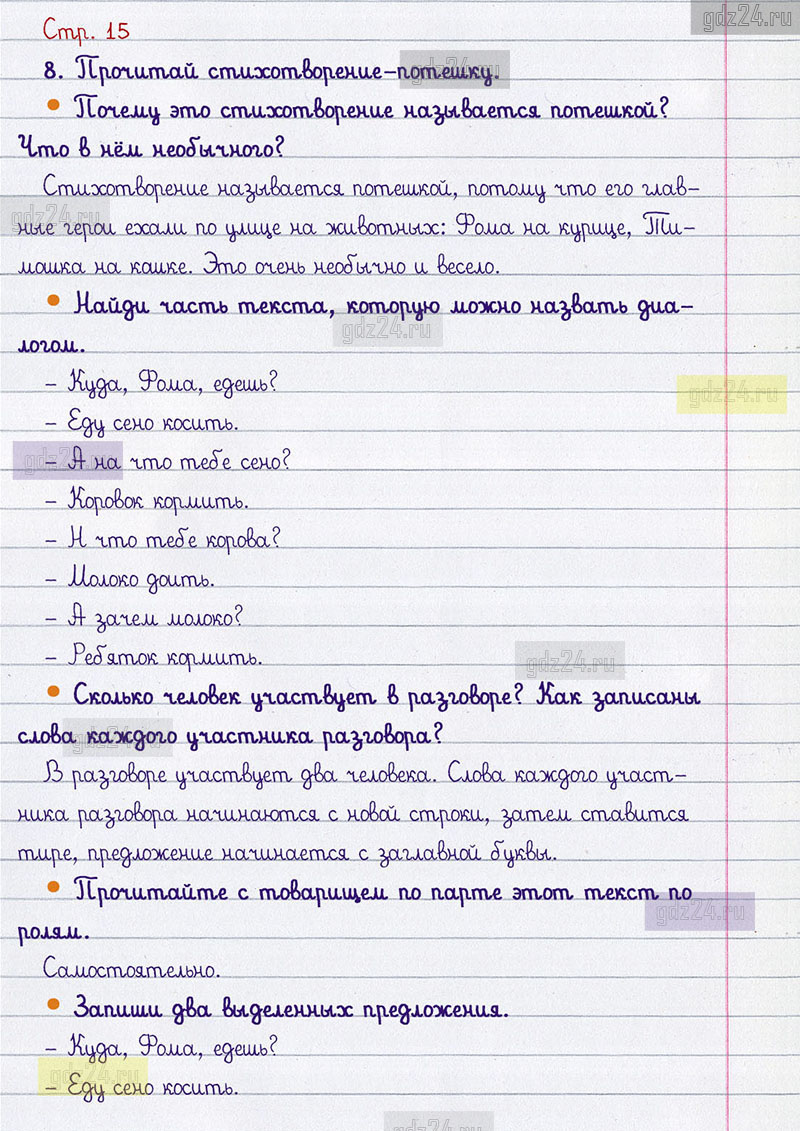 gdz24.ru
Стр. 15
8. Прочитай стихотворение-потешку.
gdz24.ru
• Почему это стихотворение называется потешкой?
Что в нём необычного?
Стихотворение называется потешкой, потому что его глав-
gdz24.ru
ные герои ехали по улице на животных: Фома на курице, Ти-
мошка на кошке. Это очень необычно и весело.
• Найди часть текста, которую можно назвать диа-
gdz24.ru
логом.
– Куда, Фома, едешь?
gdz24.ru
– Еду сено косить.
gdz24.ru
– А на что тебе сено?
– Коровок кормить.
– Н что тебе корова?
– Молоко доить.
– А зачем молоко?
– Ребяток кормить.
gdz24.ru
• Сколько человек участвует в разговоре? Как записаны
слова каждого участника разговора?
gdz24.ru
В разговоре участвует два человека. Слова каждого участ-
ника разговора начинаются с новой строки, затем ставится
тире, предложение начинается с заглавной буквы.
• Прочитайте с товарищем по парте этот текст по
gdz24.ru
ролям.
Самостоятельно.
• Запиши два выделенных предложения.
– Куда, Фома, едешь?
gdz24.ru
– Еду сено косить.
gdz24.ru